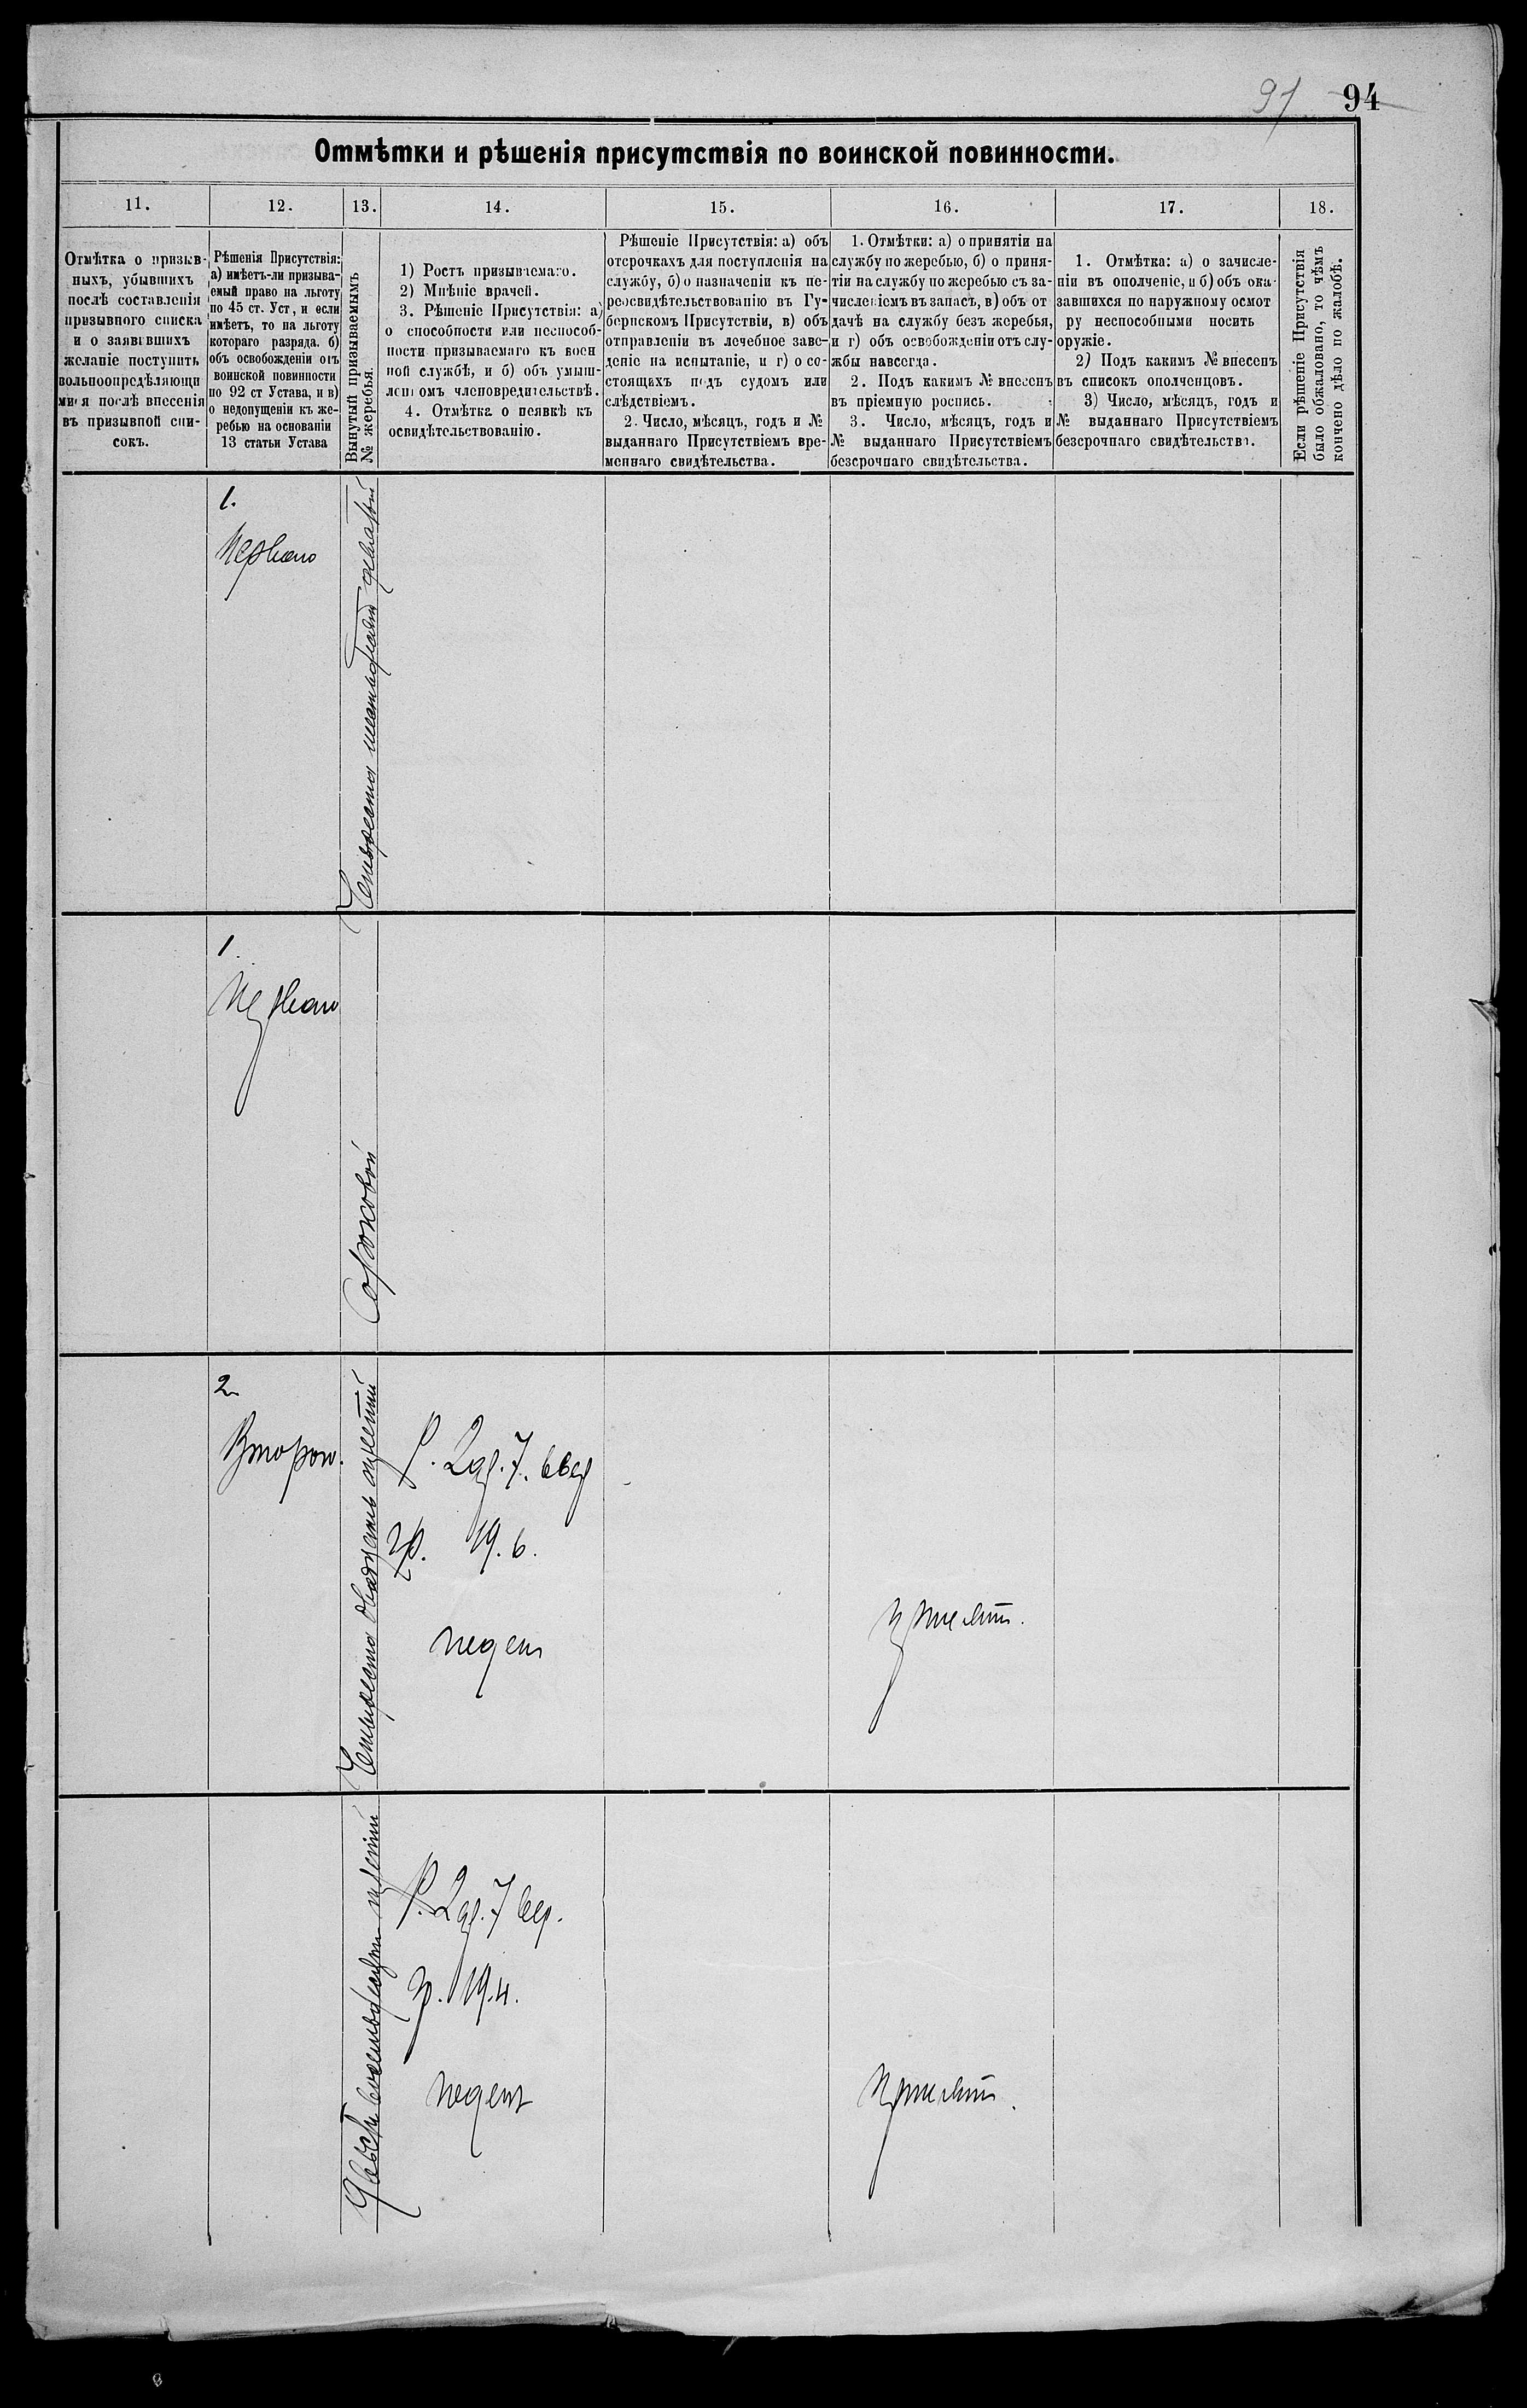 91 94
Отмѣтки и рѣшенія присутствія по воинской повинности.
11. 12. 13. 14. 15. 16. 17. 18.
Отмѣтка о призыв-
ныхъ, убывшихъ
послѣ составленія
призывного списка
и о заявившихъ
желаніе поступить
вольноопредѣляющи
мися послѣ внесенія
въ призывной спи-
сокъ.
Рѣшенія Присутствія:
а) имѣетъ-ли призыва-
емый право на льготу
по 45 ст. Уст, и если
имѣетъ, то на льготу
котораго разряда. б)
объ освобожденіи отъ
воинской повинности
по 92 ст Устава, и в)
о недопущеніи къ же-
ребью на основаніи
13 статьи Устава
Вынутый призываемымъ
№ жеребья.
1) Ростъ призываемаго.
2) Мнѣніе врачей.
3. Рѣшеніе Присутствія: а)
о способности или неспособ-
ности призываемаго къ воен
ной службѣ, и б) объ умыш-
ленномъ членовредительствѣ.
4. Отмѣтка о неявкѣ къ
освидѣтельствованію.
Рѣшеніе Присутствія: а) объ
отсрочкахъ для поступленія на
службу, б) о назначеніи къ пе-
реосвидѣтельствованію въ Гу-
бернскомъ Присутствіи, в) объ
отправленіи въ лечебное заве-
деніе на испытаніе, и г) о со-
стоящихъ подъ судомъ или
слѣдствіемъ.
2. Число, мѣсяцъ, годъ и №
выданнаго Присутствіемъ вре-
меннаго свидѣтельства.
1. Отмѣтки: а) о принятіи на
службу по жеребью, б) о приня-
тіи на службу по жеребью съ за-
численіемъ въ запасъ, в) объ от
дачѣ на службу безъ жеребья,
и г) объ освобожденіи отъ слу-
жбы навсегда.
2. Подъ какимъ № внесенъ
въ пріемную роспись.
3. Число, мѣсяцъ, годъ и
№ выданнаго Присутствіемъ
безсрочнаго свидѣтельства.
1. Отмѣтка: а) о зачисле-
ніи въ ополченіе, и б) объ ока
завшихся по наружному осмот
ру неспособными носить
оружіе.
2) Подъ какимъ № внесенъ
въ списокъ ополченцовъ.
3) Число, мѣсяцъ, годъ и
№ выданнаго Присутствіемъ
безсрочнаго свидѣтельства.
Если рѣшеніе Присутствія
было обжаловано, то чѣмъ
кончено дѣло по жалобѣ.
1.
Перваго
Четыреста шестьдесятъ девятый
1.
Перваго
Сороковой
2
Второго.
Четыреста двадцать
Р. 2 ар. 7.
гр. 19. 6.
годенъ
принятъ.
Двѣсти восемьдесятъ
Р. 2 ар. 7 вер.
гр. 19. 4.
годенъ
принятъ.